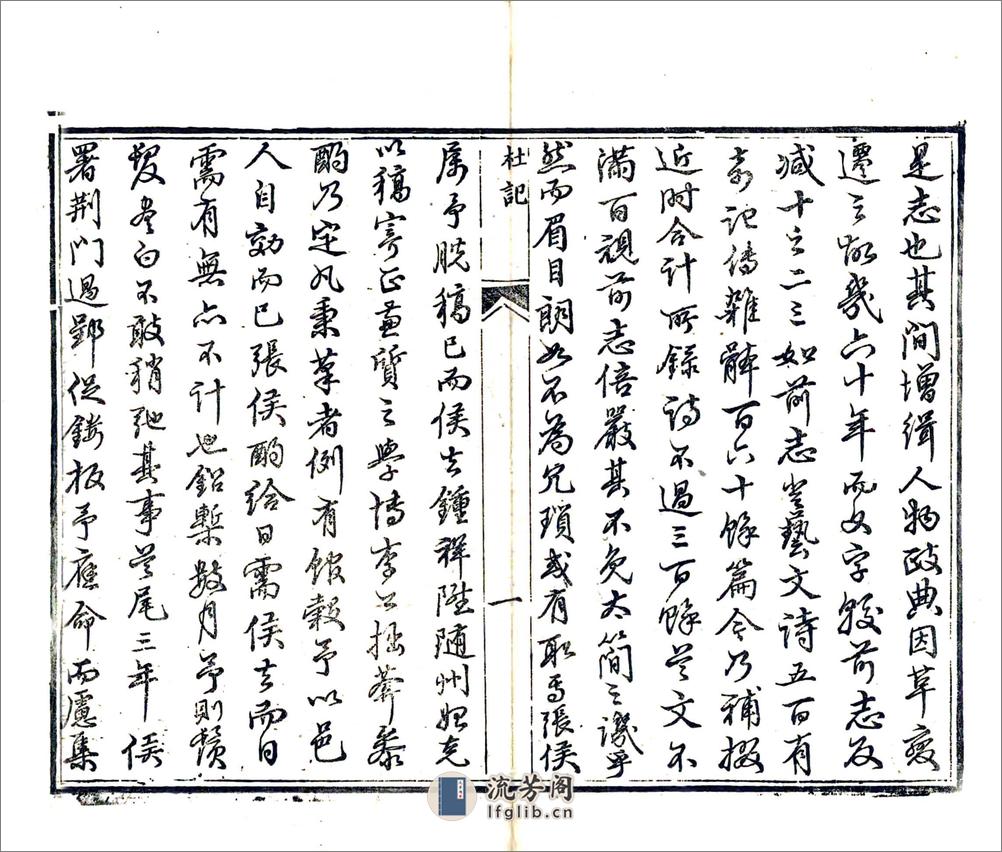 是志也其間增緝人物政典因革變
遷之故幾六十年而文字較前志反
減十之二三如前志登藝文詩五百有
奇記傳雜體百六十餘篇今乃補掇
近時合計所錄詩不過三百餘首文不
滿百視前志倍嚴其不免太簡之譏乎
然而眉目朗如不為冗瑣或有取焉張侯
杜記
一
屬予脫稿已而侯去鍾祥陞隨州始克
以稿寄正兼質之學博李公
酌乃定凡秉筆者例有餼穀予以邑
人自効而已張侯酌給日需侯去而日
需有無亦不計也鉛槧數月予則鬚
髮盡白不敢稍弛其事首尾三年侯
署荆門過郢促鏤板予應命而慮集
流芳阁
lfglib.cn